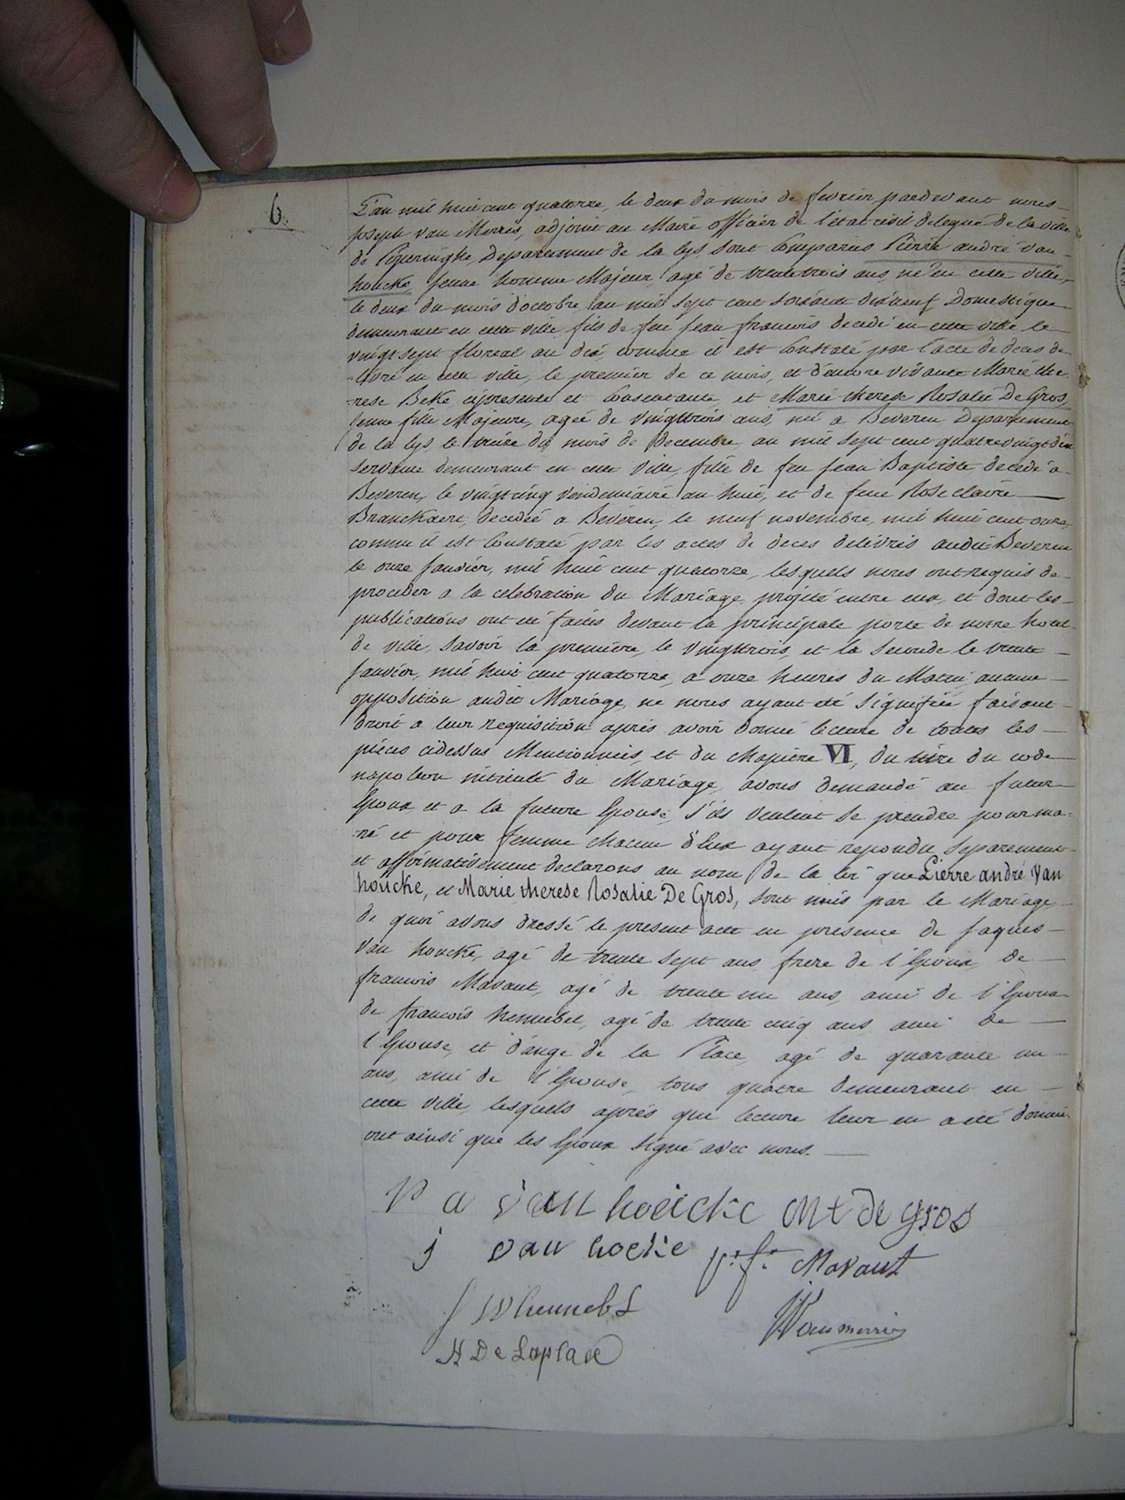 6.
L'an mil huit cent quatorze, le deux du mois de fevrier pardevant nous
joseph van Merris, adjoint au Maire officier de l'état civil delegué de la ville
de Poperinghe Departement de la Lys, sont Comparus Pierre andré van
houcke, Jeune homme Majeur, agé de trente trois ans, né en cette ville,
le deux du mois d'octobre an mil sept cent soixante dixneuf Domestique
demeurant en cette ville, fils de feu Jean francois decedé en cette ville le
vingt sept floreal an dix comme il est Constaté par l'acte de deces de-
-livré en cette ville, le premier de ce mois, et d'encore vivante Marie the
rese Beke cipresente et Consentante et Marie therese Rosalie De Gros,
Jeune fille Majeure, agée de vingttrois ans, né a Beveren Departement
de la Lys le treize du mois de Decembre an mil sept cent quatrevingt dix
servante demeurant en cette ville, fille de feu Jean Baptiste decedé a
Beveren, le vingtcinq Vendemiaire an huit, et de feue Rose claire
Branckaert, decedée a Beveren, le neuf novembre, mil huit cent onze,
comme il est Constaté par les actes de deces delivrés audit Beveren
le onze Janvier, mil huit cent quatorze, lesquels nous ont requis de
proceder a la celebration du Mariage projeté entre eux, et dont les
publications ont été faites devant la principale porte de notre hotel
de ville, savoir la premiere, le vingttrois, et la seconde le trente
Janvier, mil huit cent quatorze, a onze heures du Matin, aucune
opposition audit Mariage, ne nous ayant été signifiée faisant
droit a leur requisition après avoir donné lecture de toutes les
pièces cidessus Mentionnées, et du chapitre VI, du titre du code
napoleon intitulé du Mariage, avons demandé au futur
Epoux, et a la future Epouse, s'ils veulent se prendre pour ma-
ri et pour femme chacun d'Eux ayant repondu separement
et affirmativement declarons au nom de la loi que Pierre andré Van
houcke, et Marie therese Rosalie De Gros, sont unis par le Mariage
de quoi avons dressé le present acte en presence de Jaques
Van houcke, agé de trente sept ans frere de l'Epoux, de
francois Mavaut, agé de trente un ans, ami de l'Epoux
de francois hennebel, agé de trente cinq ans ami de
l'Epouse, et d'ange de la Place, agé de quarante un
ans, ami de l'Epouse, tous quatre demeurant en
cette ville, lesquels après que lecture leur en a été donnée
ont ainsi que les Epoux signé avec nous.
P a van hoeicke M t de gros
j van hocke p. f. Mavaut
Vanmerris
De Laplace